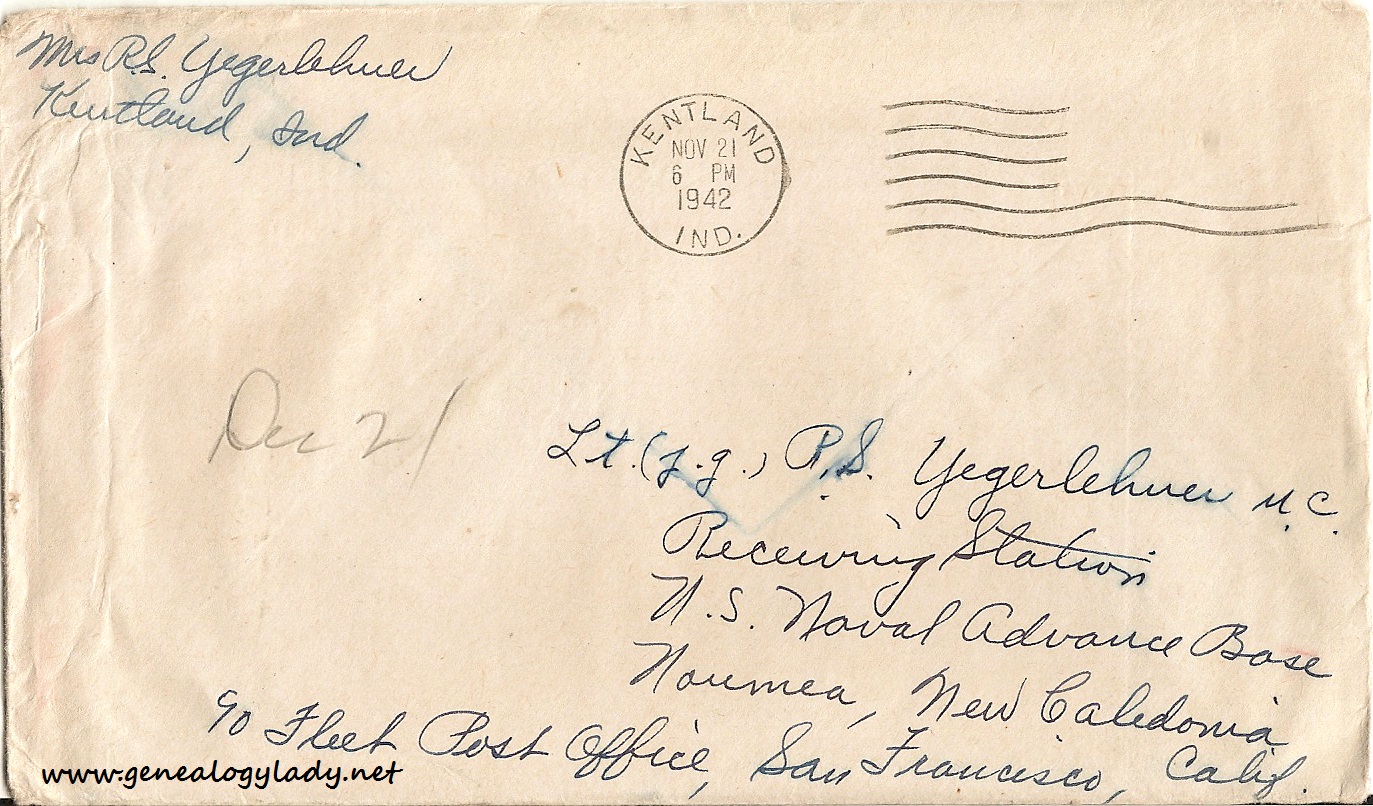 Mrs R.S. Yegerlehner
Kentland, Ind.
KENTLAND
NOV 21
6 PM
1942
IND.
Dec 21
Lt. (j.g.) R.S. Yegerlehner M.C.
Receiving Station
U.S. Naval Advance Base
Noumea, New Caledonia
c/o Fleet Post Office, San Francisco, Calif.
www.genealogylady.net